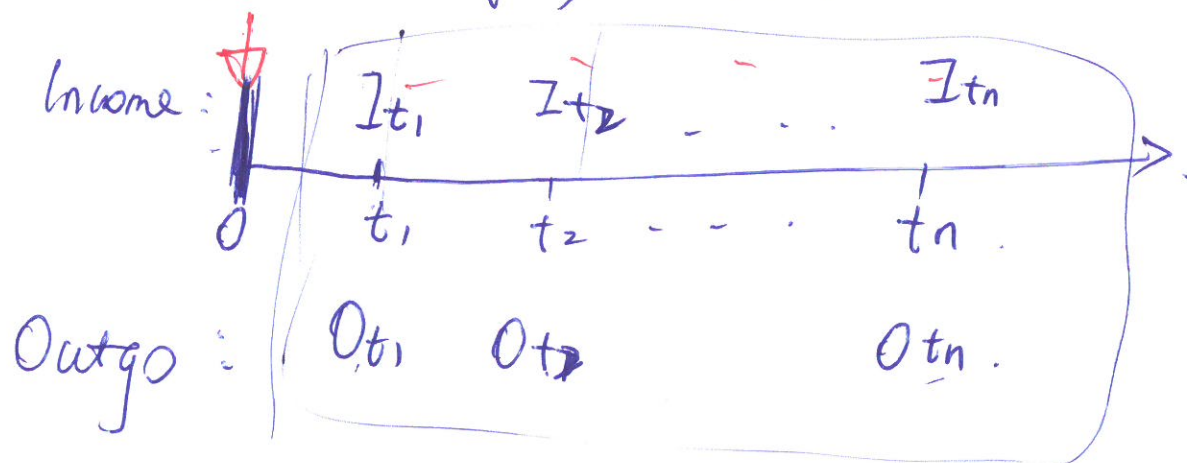 Income : It₁ It₂ - . . Itₙ
0 t₁ t₂ - - - . tₙ .
Outgo : Ot₁ Ot₂ Otₙ .